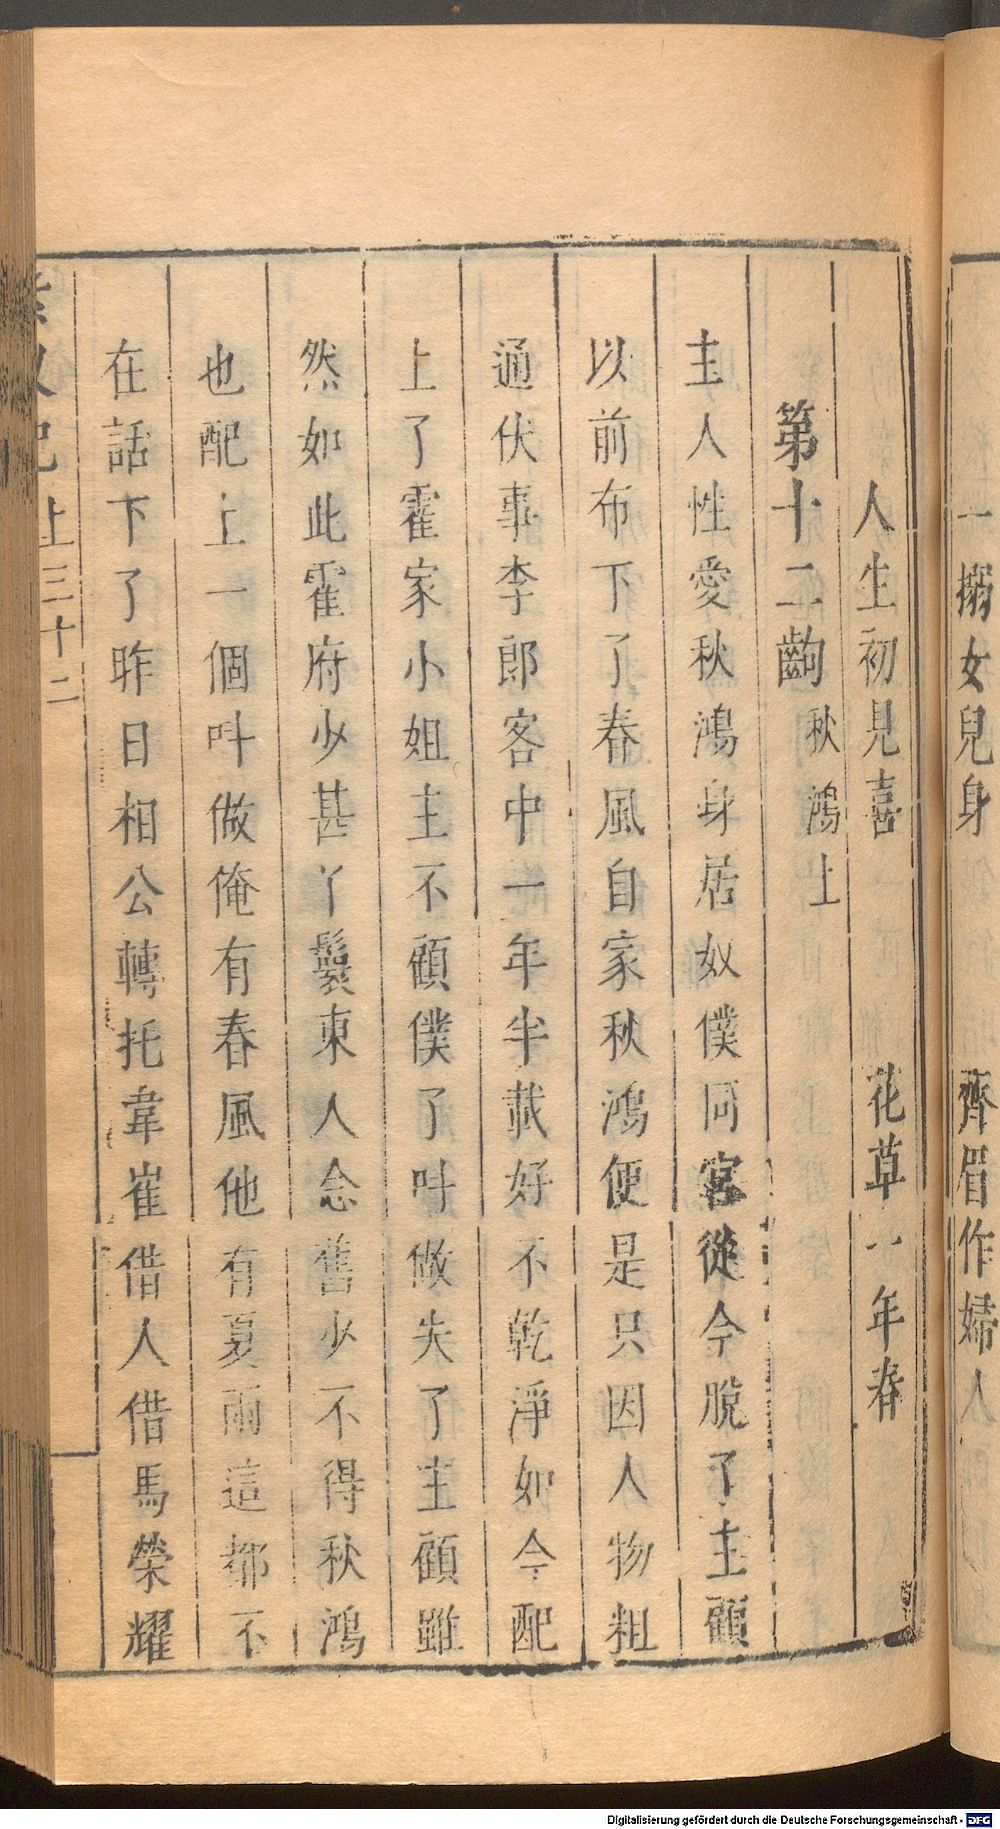 一搦女兒身　齊眉作婦人
人生初見喜　花草一年春
第十二齣 秋鴻上
主人性愛秋鴻身居奴僕同宮從今脫了主顧
以前布下了春風自家秋鴻便是只因人物粗
通伏事李郎客中一年半載好不乾淨如今配
上了霍家小姐主不顧僕了叫做失了主顧雖
然如此霍府少甚丫鬟東人念舊少不得秋鴻
也配上一個叫做俺有春風他有夏雨這都不
在話下了昨日相公轉托韋崔借人借馬榮耀
記上三十二
Digitalisierung gefördert durch die Deutsche Forschungsgemeinschaft - DFG